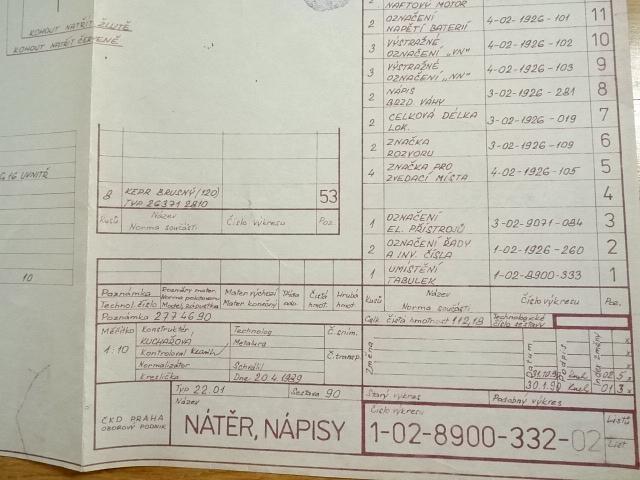 KOHOUT NATŘÍT ŽLUTĚ
KOHOUT NATŘÍT ČERVENĚ
G 16 UVNITŘ
10
NAFTOVÝ MOTOR
2 OZNAČENÍ NAPĚTÍ BATERIÍ 4-02-1926-101 11
3 VÝSTRAŽNÉ OZNAČENÍ „VN“ 4-02-1926-102 10
3 VÝSTRAŽNÉ OZNAČENÍ „NN“ 4-02-1926-103 9
2 NÁPIS BRZD. VÁHY 3-02-1926-281 8
2 CELKOVÁ DÉLKA LOK. 3-02-1926-019 7
2 ZNAČKA ROZVORU 3-02-1926-109 6
4 ZNAČKA PRO ZVEDACÍ MÍSTA 4-02-1926-105 5
4
1 OZNAČENÍ EL. PŘÍSTROJŮ 3-02-9071-084 3
2 OZNAČENÍ ŘADY A INV. ČÍSLA 1-02-1926-260 2
1 UMÍSTĚNÍ TABULEK 1-02-8900-333 1
Kusů Název Norma součásti Číslo výkresu Poz.
8 KEPR BRUSNÝ (120) TYP 26371 2810 53
Kusů Název Norma součásti Číslo výkresu Poz.
Poznámka Rozměry mater. Mater. výchozí Třída Čistá Hrubá
Technol. číslo Mater. konečný odp. hmot. hmot.
Poznámka 277 46 90
Celk. čistá hmotnost 112,18 Technologické číslo sestavy
Měřítko 1:10
Konstruktér, Technolog Č. sním.
KUCHAŘOVÁ Metalurg
Kontroloval Č. transp.
Normalizátor Schválil
Kreslička Dne 20.4.1989
Změna Datum Podpis Index změny
31.10.90 02 5 x
30.1.90 01 3 x
Typ 22.01 Sestava 90 Starý výkres Podobný výkres
ČKD PRAHA
OBOROVÝ PODNIK
Název
NÁTĚR, NÁPISY
Číslo výkresu
1-02-8900-332-02
Listů
List